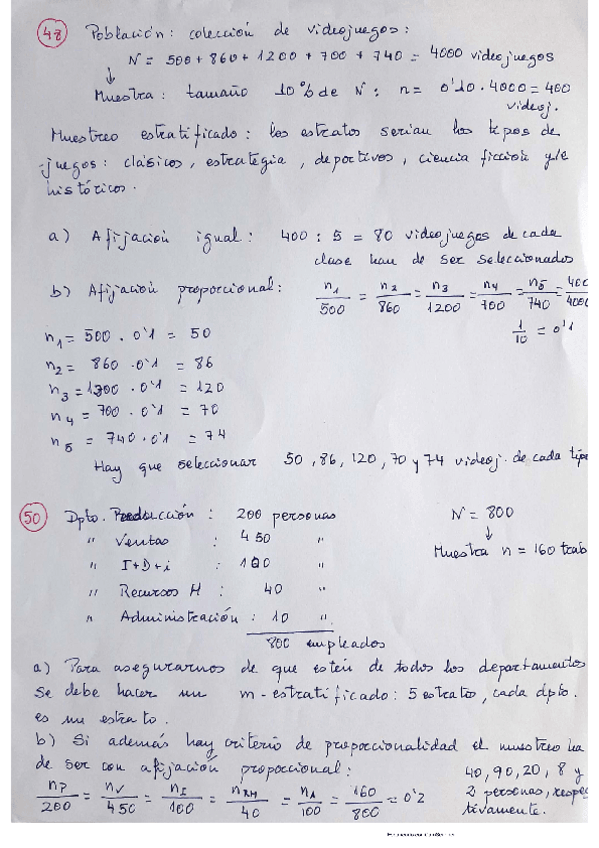 48 Población: colección de videojuegos:
N = 500 + 860 + 1200 + 700 + 740 = 4000 videojuegos
↓
Muestra: tamaño 10% de N: n = 0'10 · 4000 = 400 videoj.
Muestreo estratificado: los estratos serían los tipos de
juegos: clásicos, estrategia, deportivos, ciencia ficción y/e
históricos.
a) Afijación igual: 400 : 5 = 80 videojuegos de cada
clase han de ser seleccionados
b) Afijación proporcional: n1/500 = n2/860 = n3/1200 = n4/700 = n5/740 = 400/4000
1/10 = 0'1
n1 = 500 · 0'1 = 50
n2 = 860 · 0'1 = 86
n3 = 1200 · 0'1 = 120
n4 = 700 · 0'1 = 70
n5 = 740 · 0'1 = 74
Hay que seleccionar 50, 86, 120, 70 y 74 videoj. de cada tipo
50 Dpto. Producción : 200 personas
" Ventas : 450 "
" I+D+i : 100 "
" Recursos H : 40 "
" Administración : 10 "
800 empleados
N = 800
↓
Muestra n = 160 trab
a) Para asegurarnos de que estén de todos los departamentos
se debe hacer un m-estratificado: 5 estratos, cada dpto.
es un estrato.
b) Si además hay criterio de proporcionalidad el muestreo ha
de ser con afijación proporcional:
nP/200 = nV/450 = nI/100 = nRH/40 = nA/100 = 160/800 = 0'2
40, 90, 20, 8 y
2 personas, respec
tivamente.